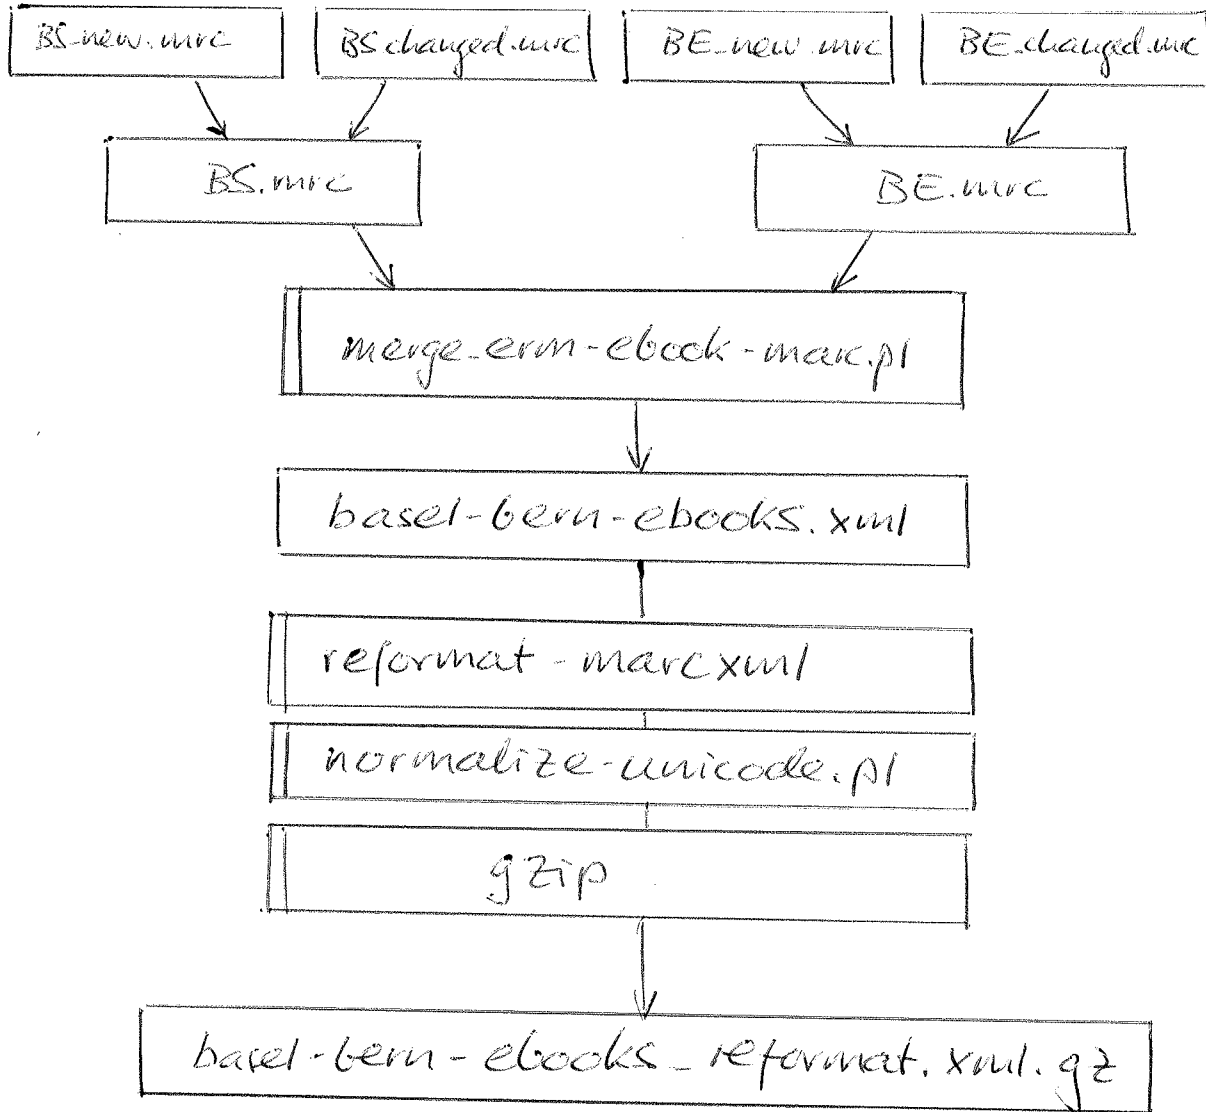 BS_new.mrc
BS_changed.mrc
BE_new.mrc
BE_changed.mrc
BS.mrc
BE.mrc
merge_erm-ebook-marc.pl
basel-bern-ebooks.xml
reformat-marcxml
normalize-unicode.pl
gzip
basel-bern-ebooks_reformat.xml.gz